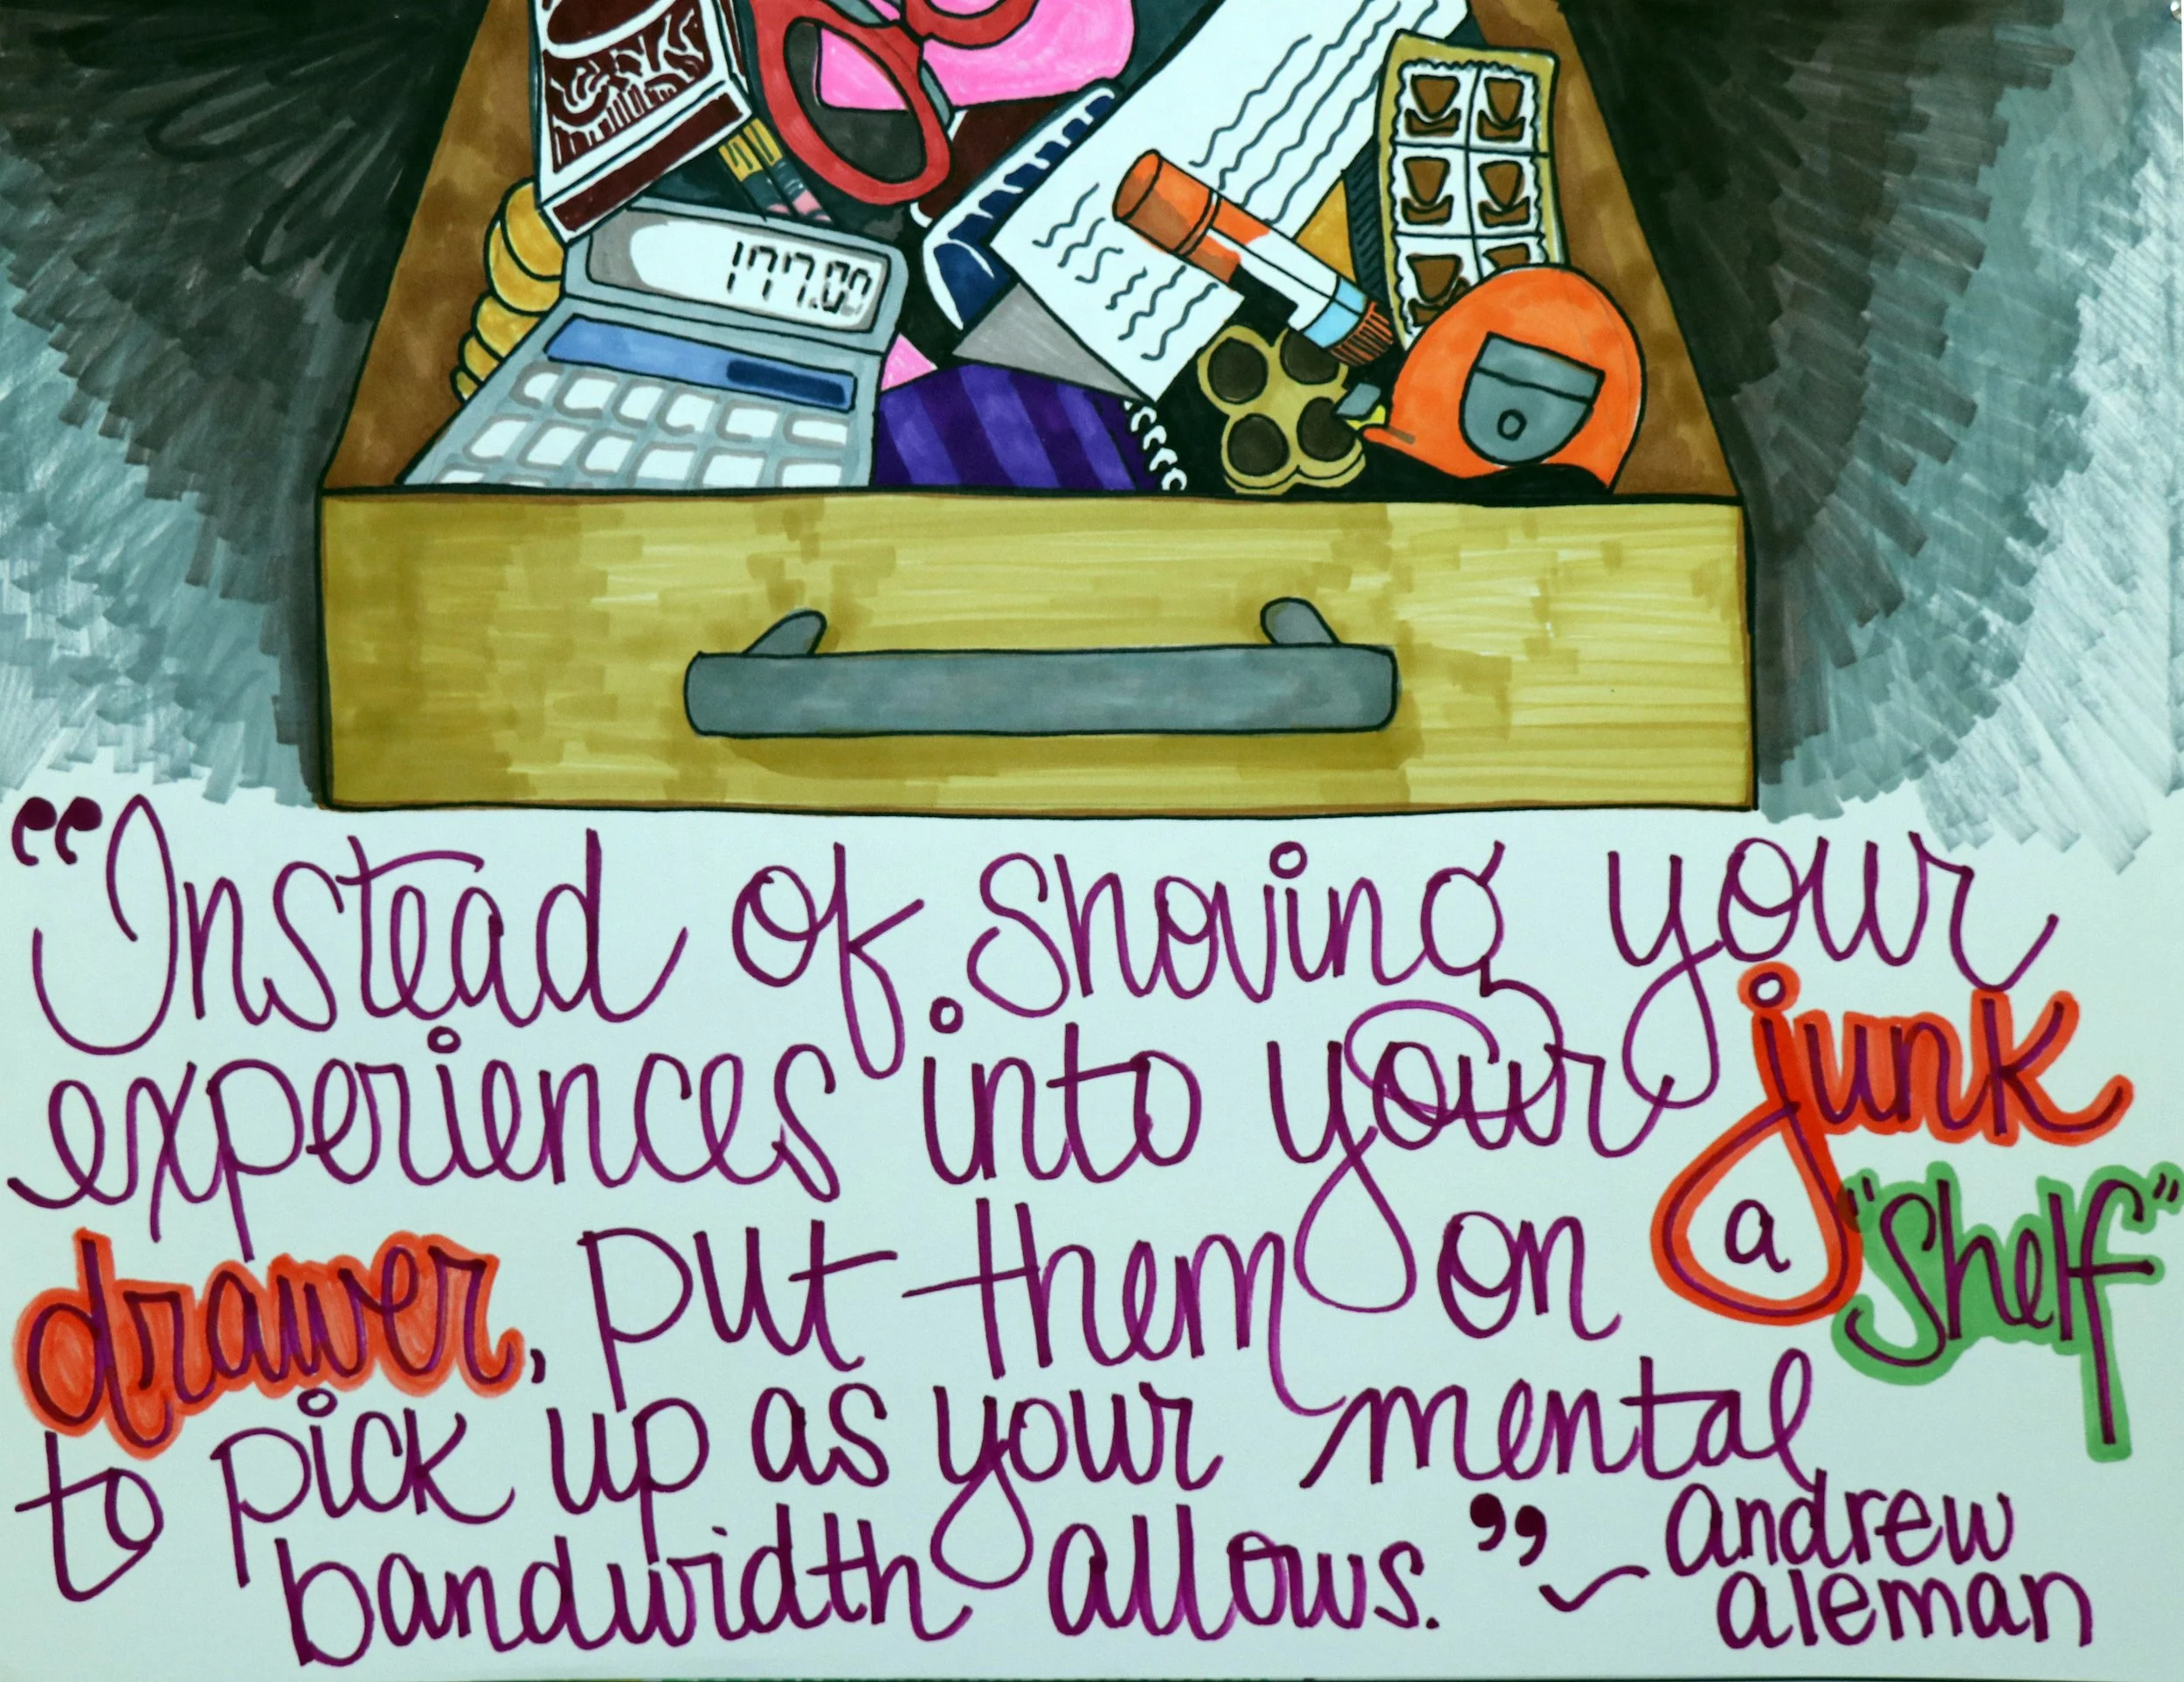 177.00
“Instead of shoving your
experiences into your junk
drawer, put them on a "shelf"
to pick up as your mental
bandwidth allows.” ~ andrew
aleman